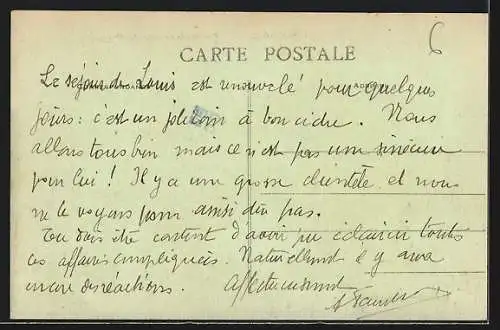 6
CARTE POSTALE
Le séjour de Louis est renouvelé pour quelques
jours : c'est un joli coin à bon cidre. Nous
allons tous bien mais ce n'est pas une sinécure
pour lui ! Il y a une grosse clientèle et nous
ne le voyons pour ainsi dire pas.
Tu dois être content d'avoir pu éclaircir toutes
ces affaires compliquées. Naturellement il y aura
encore des réactions. Affectueusement